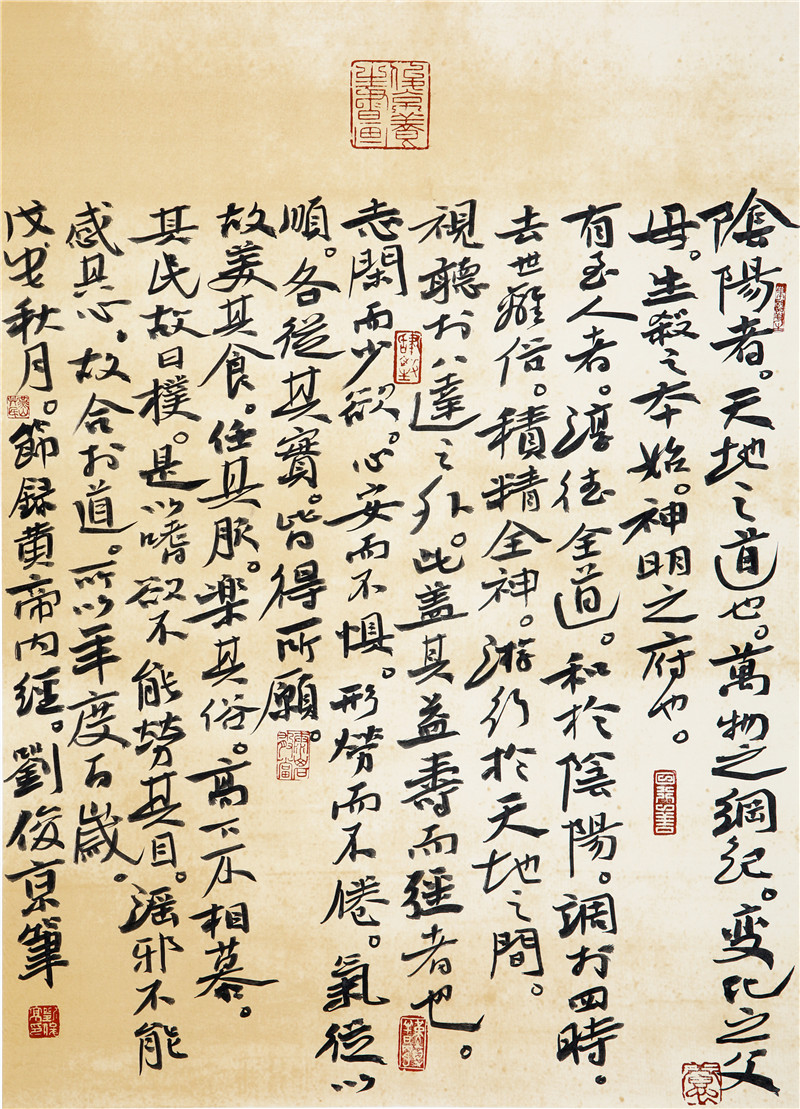 陰陽者。天地之道也。萬物之綱紀。变化之父
母。生殺之本始。神明之府也。
有至人者。淳德全道。和於陰陽。調於四時。
去世離俗。積精全神。游行於天地之間。
視聽於八達之外。此蓋其益壽而彊者也。
志閑而少欲。心安而不懼。形勞而不倦。氣從以
順。各從其實。皆得所願。
故美其食。任其服。樂其俗。高下不相慕。
其民故曰樸。是以嗜欲不能勞其目。淫邪不能
感其心。故合於道。所以年度百歲。
戊戌秋月。節録黄帝内經。劉俊京筆